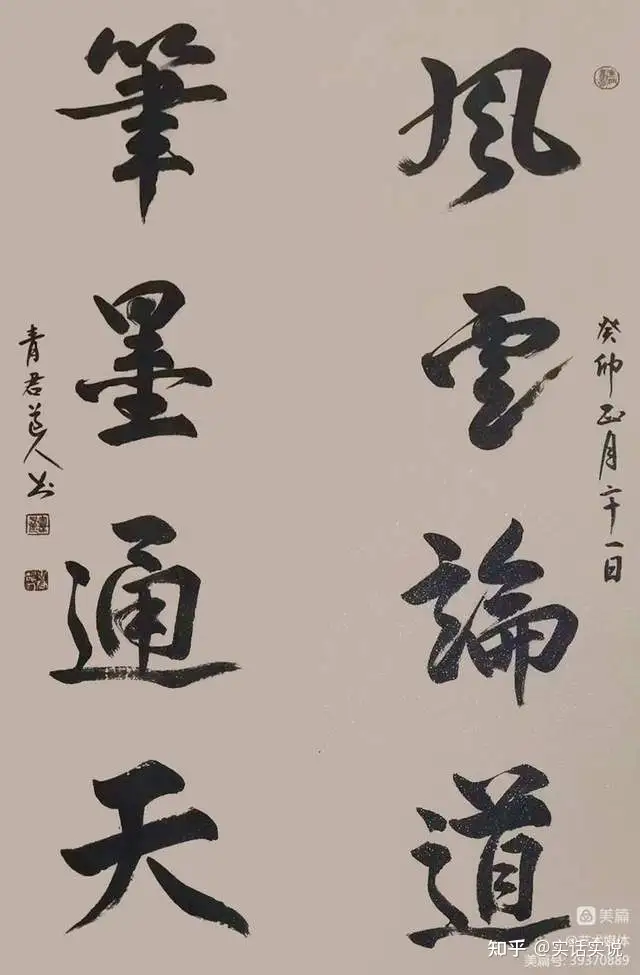 癸卯正月二十一日
風雲論道
筆墨通天
青君道人书
美篇
@艺术媒体
知乎 @实话实说
美篇号: 39370889